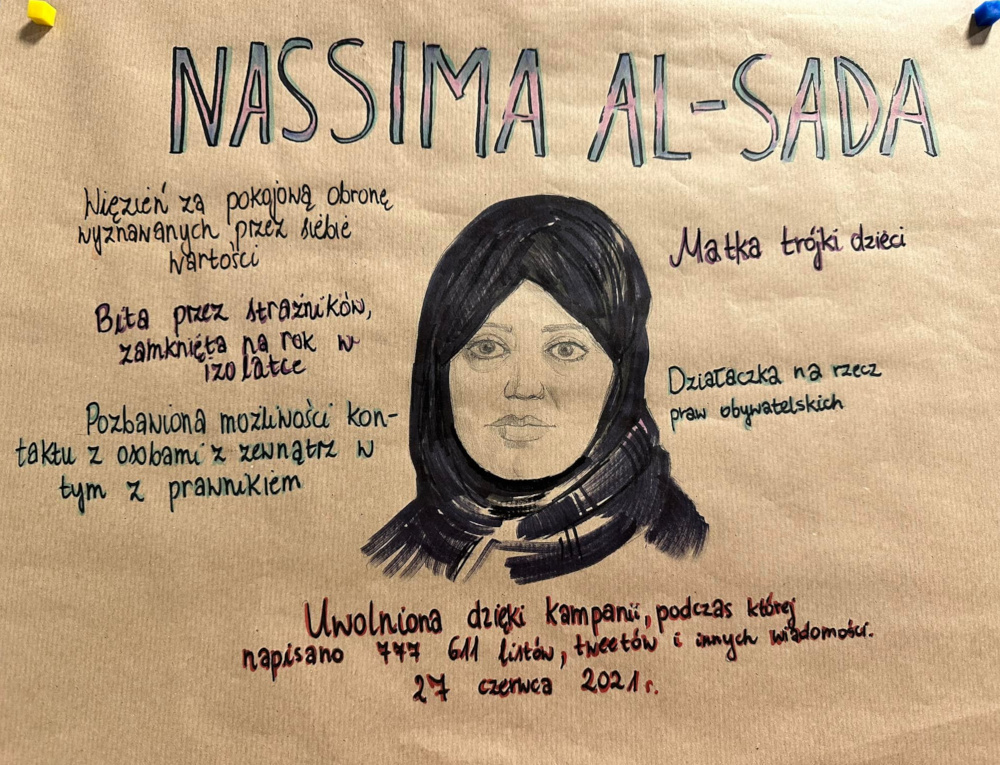 NASSIMA AL-SADA
Więzień za pokojową obronę
wyznawanych przez siebie
wartości
Bita przez strażników,
zamknięta na rok w
izolatce
Pozbawiona możliwości kon-
taktu z osobami z zewnątrz w
tym z prawnikiem
Matka trójki dzieci
Działaczka na rzecz
praw obywatelskich
Uwolniona dzięki kampanii, podczas której
napisano 777 611 listów, tweetów i innych wiadomości.
27 czerwca 2021 r.